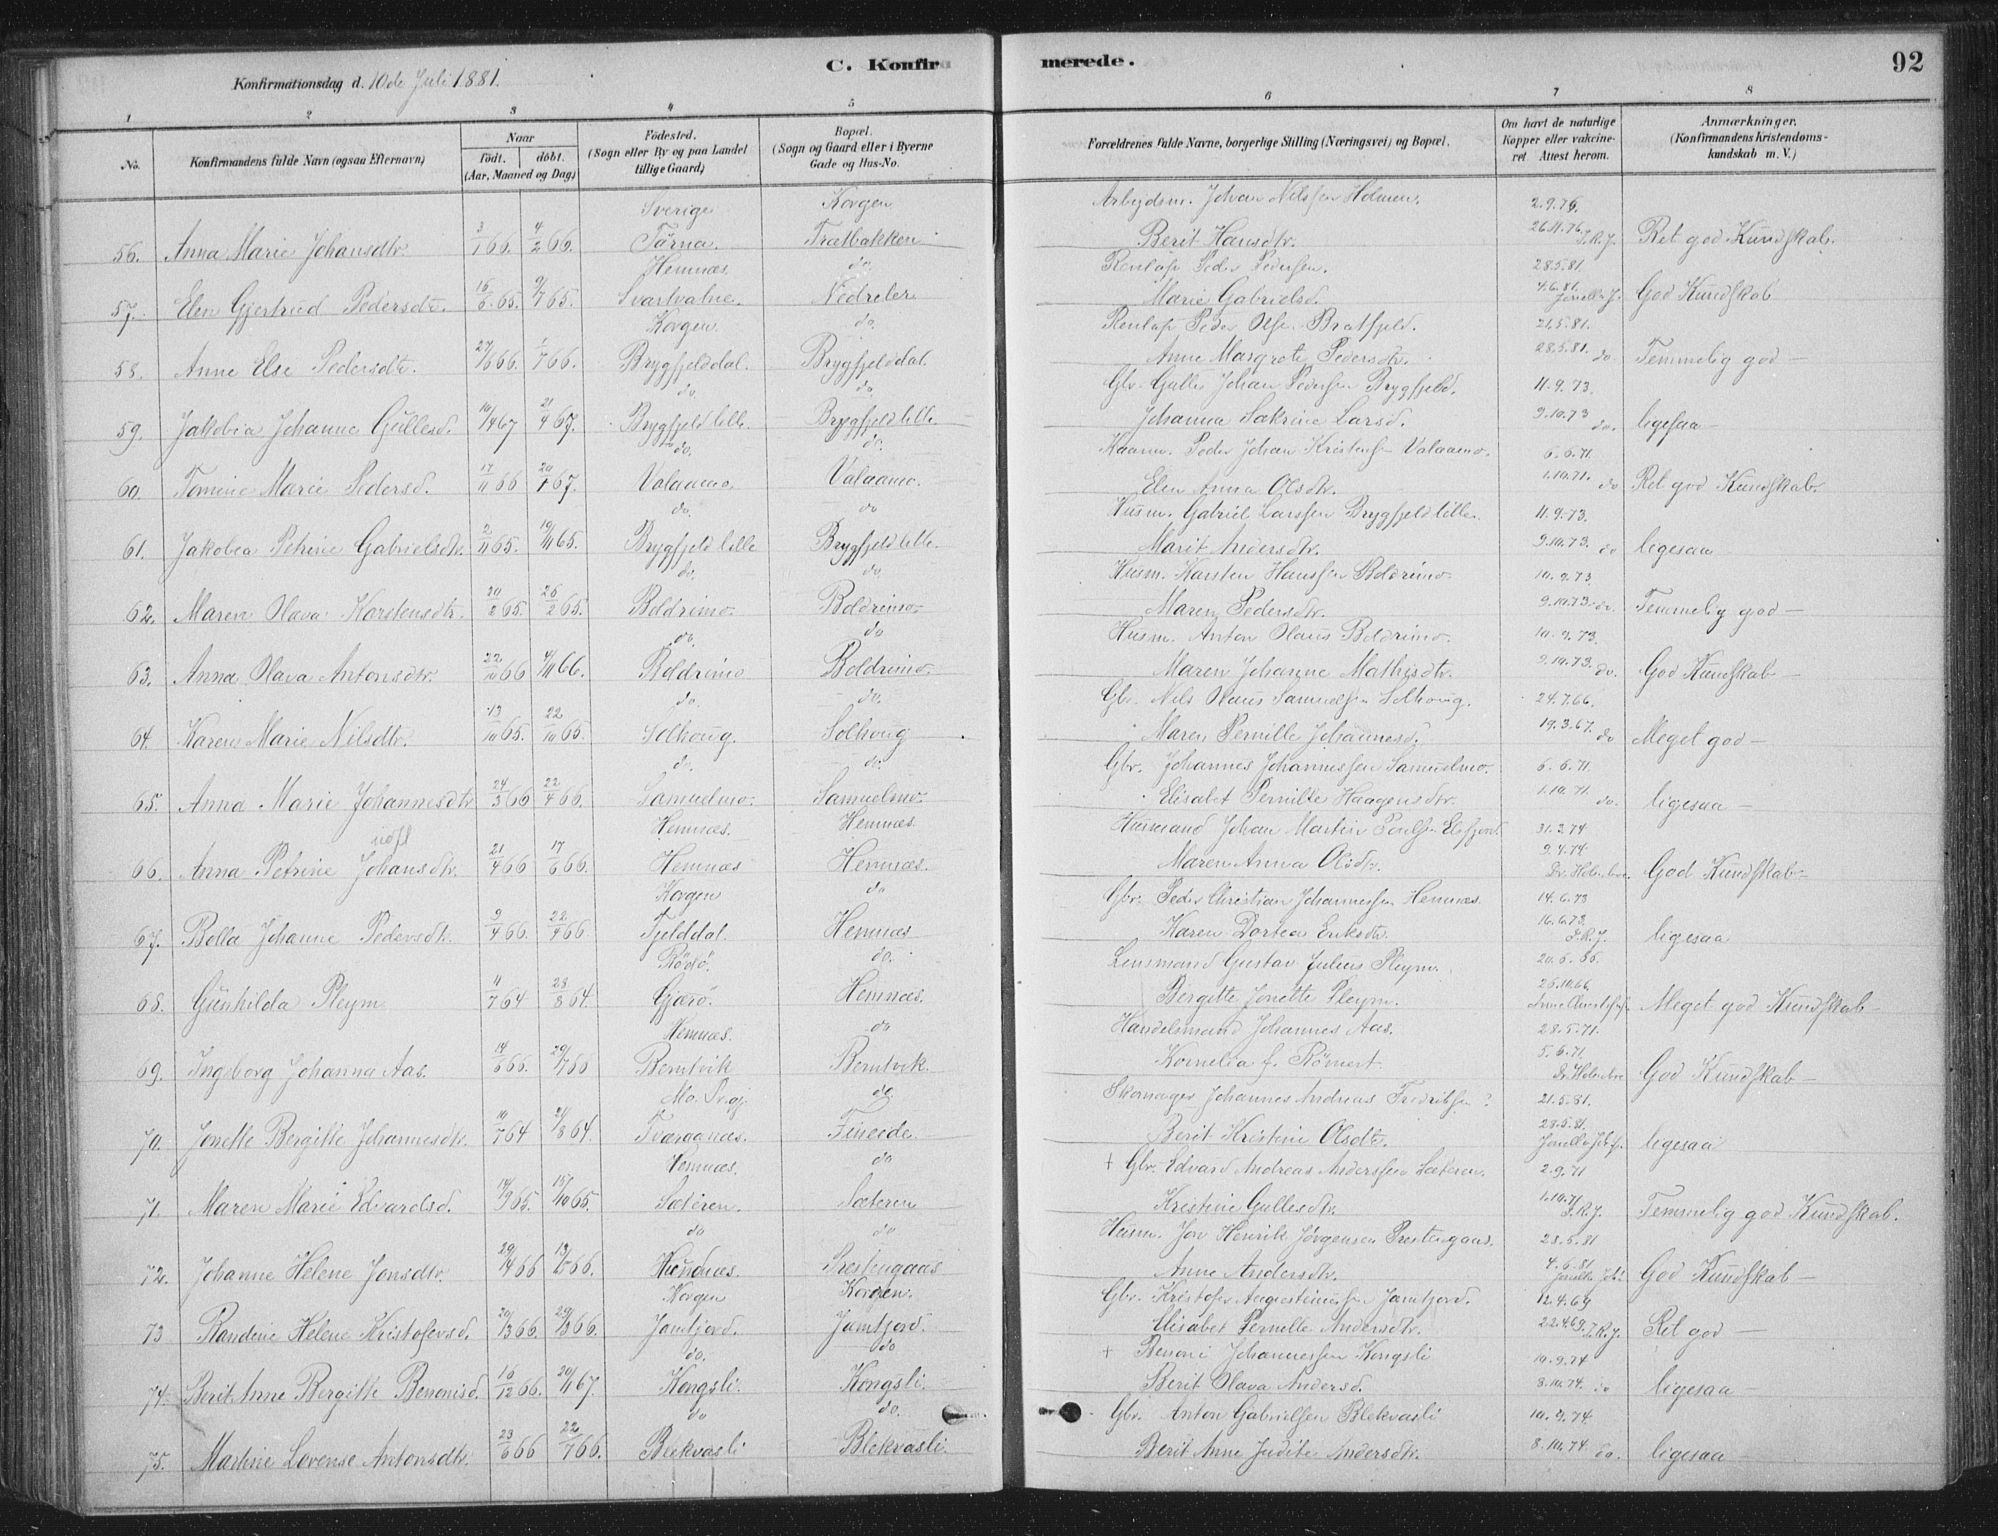 C. Konfirmerede.
92
Konfirmationsdag d. 10de Juli 1881.
1 2 3 4 5 6 7 8
No. Konfirmandens fulde Navn (ogsaa Efternavn) Naar født. døbt. (Aar, Maaned og Dag) Fødested. (Sogn eller By og paa Landet tillige Gaard) Bopæl. (Sogn og Gaard eller i Byerne Gade og Hus-No. Forældrenes fulde Navne, borgerlige Stilling (Næringsvei) og Bopæl. Om havt de naturlige Kopper eller vakcineret Attest herom. Anmærkninger. (Konfirmandens Kristendomskundskab m. V.)
Sverige Korgen Arbeidsm. Johan Nilssen Holmen. 2.9.76.
56. Anna Marie Johansdtr. 3/1 66. 4/2 66. Tärna. Trætbakken Berit Hansdtr. 26.11.76. J.R.J. Ret god Kundskab.
Hemnæs. do. Renlap Peder Pedersen. 28.5.81.
57. Elen Gjertrud Pedersdtr. 15/6 65. 9/7 65. Svartvatne. Nedreler Marie Gabrielsd. 4.6.81. God Kundskab
Korgen. do. Renlap Peder Olsen Bratfjeld. 21.5.81.
58. Anne Else Pedersdtr. 27/6 66. 1/7 66. Brygfjelddal. Brygfjelddal. Anne Margrete Pedersdtr. 28.5.81. do Temmelig god —
do. do Gbr. Gulle Johan Pedersen Brygfjeld. 11.9.73.
59. Jakobia Johanne Gullesd. 10/4 67 21/4 67. Brygfjeld lille. Brygfjeld lille. Johanna Sakrine Larsd. 9.10.73 do. ligesaa —
do. do. Kaarm. Peder Johan Kristensen Valaamo. 6.6.71.
60. Tomine Marie Pedersd. 17/11 66 20/1 67. Valaamo. Valaamo. Elen Anna Olsdtr. 1.10.71. do Ret god Kundskab.
do. do Husm. Gabriel Larssen Brygfjeld lille. 11.9.73.
61. Jakobea Petrine Gabrielsdtr. 2/11 65. 19/11 65. Brygfjeld lille Brygfjeld lille. Marit Andersdtr. 9.10.73. do ligesaa
do do Husm. Karsten Hanssen Boldrimo 10.9.73.
62. Maren Olava Karstensdtr. 20/2 65. 26/2 65. Boldrimo. Boldrimo. Maren Pedersdtr. 9.10.73. do. Temmelig god —
do. do Husm. Anton Olaus Boldrimo. 10.9.73.
63. Anna Olava Antonsdtr. 22/10 66 4/11 66. Boldrimo Boldrimo. Maren Johanne Mathisdtr. 9.10.73. do. God Kundskab —
do. do. Gbr. Nils Olaus Samuelsen Solhoug. 24.7.66.
64. Karen Marie Nilsdtr. 13/10 65. 22/10 65. Solhoug. Solhoug Maren Pernille Johannesd. 19.3.67. do Meget god —
do. do. Gbr. Johannes Johannessen Samuelmo. 6.6.71.
65. Anna Marie Johannesdtr 24/3 66 22/4 66. Samuelmo. Samuelmo. Elisabet Pernille Haagensdtr. 1.10.71. do. ligesaa —
Hemnæs. Hemnæs. Husmand Johan Martin Poulsen Elsfjord. 31.3.74
66. Anna Petrine Johansdtr. 21/4 66 17/6 66. Hemnæs Hemnæs. Maren Anna Olsdtr. 9.4.74. God Kundskab —
Korgen do Gbr. Peder Christian Johannessen Hemnæs. 14.6.73
67. Bolla Johanne Pedersdtr. 9/4 66. 22/4 66. Fjelddal. Hemnæs. Karen Dortea Eriksdtr. 16.6.73. J.R.J. ligesaa
Rödö. do. Lensmand Gustav Julius Pleym. 20.6.66.
68. Gunhilda Pleym 4/7 64 28/8 64. Gjærö. Hemnæs. Bergitte Jonette Pleym. 26.10.66 Meget god Kundskab —
Hemnæs. do Handelsmand Johannes Aas. 28.5.71.
69. Ingeborg Johanna Aas. 14/6 66. 29/7 66 Berntvik Berntvik. Kornelia f. Römert 5.6.71. God Kundskab —
Mo. Pr.gj. do. Skomager Johannes Andreas Fredriksen ? 21.5.81.
70. Jonette Bergitte Johannesdtr. 10/7 64 21/8 64. Tværaanæs. Fineide. Berit Kristine Olsdtr. 28.5.81. ligesaa
Hemnæs. do + Gbr. Edvard Andreas Anderssen Sæteren. 2.9.71
71. Maren Marie Edvardsd. 14/9 65. 15/10 65. Sæteren. Sæteren Kristine Gullesdtr. 1.10.71. J.R.J. Temmelig god Kundskab.
do do Husm. Jon Henrik Jørgensen Prestengaas. 28.5.81
72. Johanne Helene Jonsdtr. 29/4 66 66. Hemnæs. Prestengaas Anne Andersdtr. 4.6.81. God Kundskab —
Korgen Korgen. Gbr. Kristofer Augustinussen Jamtjord. 12.4.69
73 Randine Helene Kristofersd. 20/3 66. 66. Jamtjord. Jamtjord. Elisabet Pernelle Andersdtr. 22.4.69. J.R.J. Ret god —
do. do + Benoni Johannessen Kongsli 10.9.74
74. Berit Anne Bergitte Benonisd. 16/12 66. 67. Kongsli. Kongsli. Berit Olava Andersd. 8.10.74. do ligesaa —
do do. Gbr. Anton Gabrielsen Blekvasli 10.9.74
75. Martine Lovense Antonsdtr. 23/6 66 22/7 66. Blekvasli Blekvasli. Berit Anne Judite Andersdtr. 8.10.74 do. ligesaa —